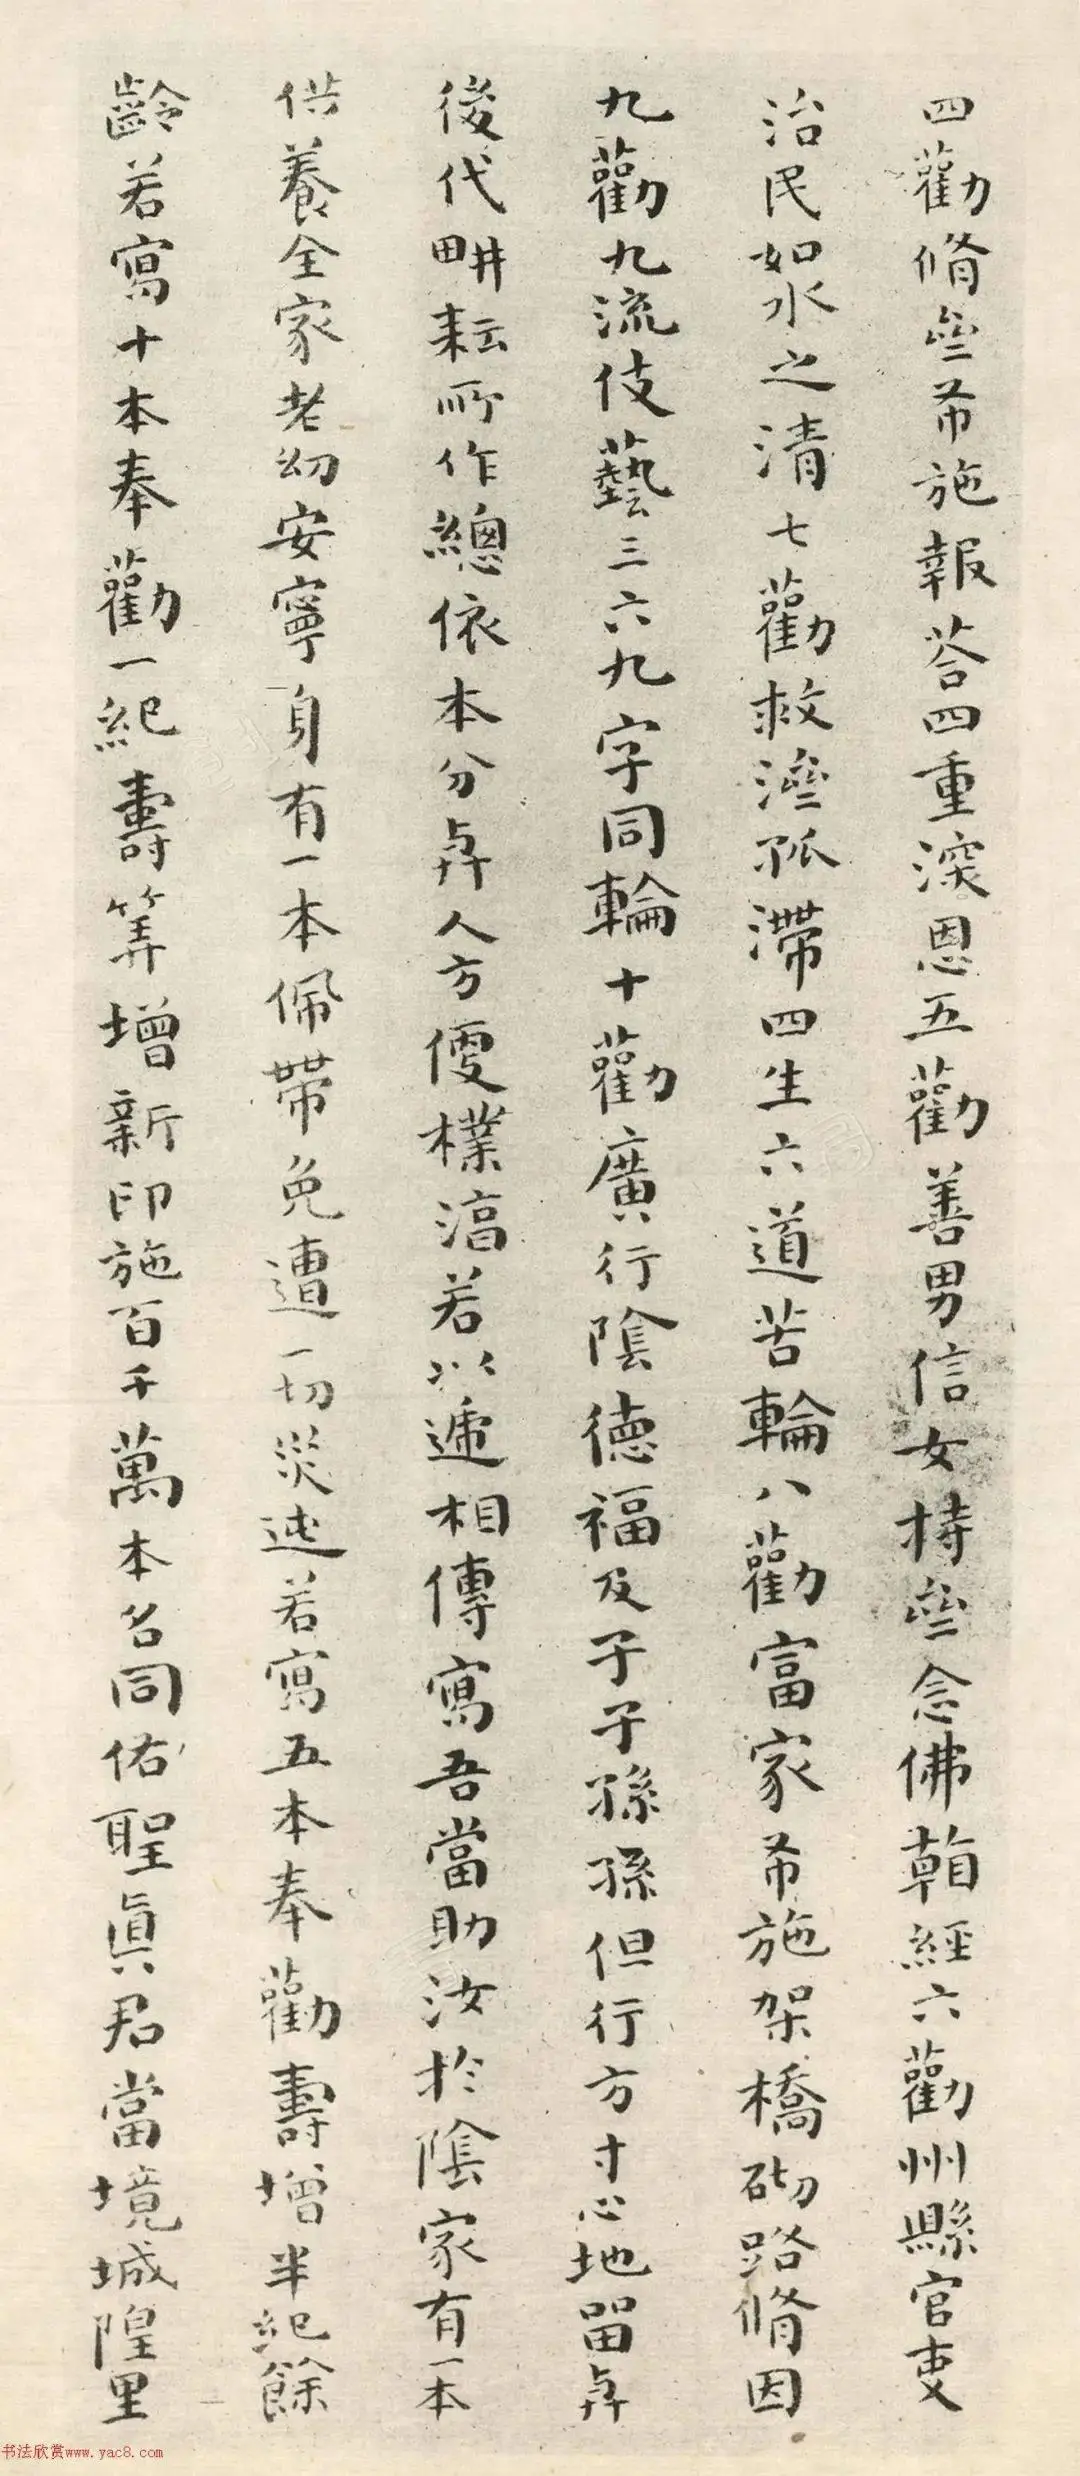 四勸脩齋布施報荅四重深恩五勸善男信女持齋念佛看經六勸州縣官吏
治民如水之清七勸救濟孤滯四生六道苦輪八勸富家布施架橋砌路脩因
九勸九流伎藝三六九字同輪十勸廣行陰德福及子子孫孫但行方寸心地留與
後代畊耘所作總依本分與人方便樸滈若以遞相傳寫吾當助汝於陰家有一本
供養全家老幼安寧身有一本佩帶免遭一切災迍若寫五本奉勸壽增半紀餘
齡若寫十本奉勸一紀壽筭增新印施百千萬本名同佑聖眞君當境城隍里
书法欣赏www.yac8.com